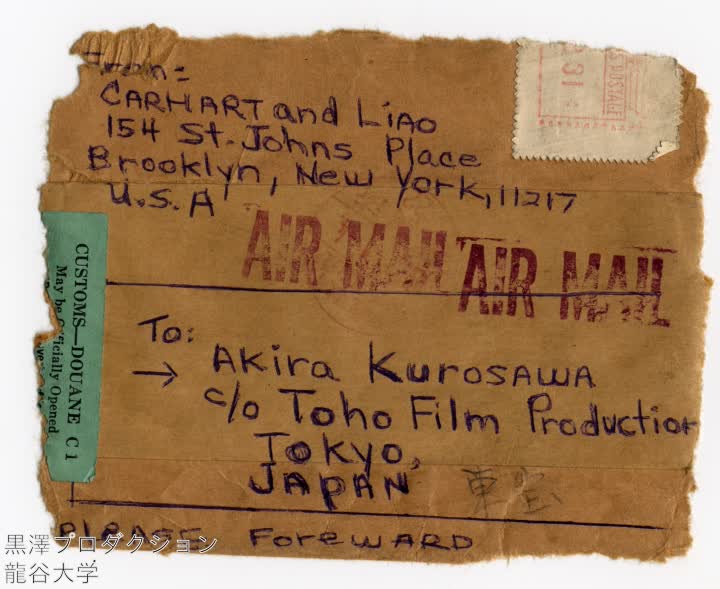 From:
CARHART and LiAO
154 St. Johns Place
Brooklyn, New York, 11217
U.S.A
POSTAGE
31
AIR MAIL AIR MAIL
CUSTOMS—DOUANE C 1
May be Officially Opened
To:
→ AKira KurosAWA
c/o Toho Film Production
Tokyo,
JAPAN
東宝
PLEASE ForeWARD
黒澤プロダクション
龍谷大学